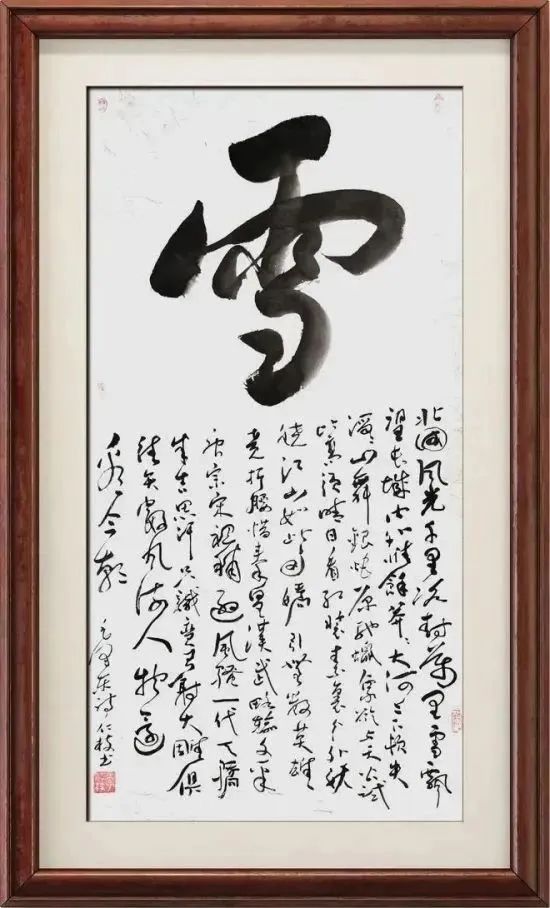 雪
北國风光千里冰封萬里雪飘
望长城内外惟餘莽〻大河上下顿失
滔〻山舞銀蛇原驰蠟象欲与天公試
比高须晴日看红装素裹分外妖
娆江山如此多嬌引無数英雄
竞折腰惜秦皇漢武略输文采
唐宗宋祖稍逊风骚一代天骄
成吉思汗只識弯弓射大雕俱
往矣数风流人物还
看今朝
毛泽东诗 仁 书